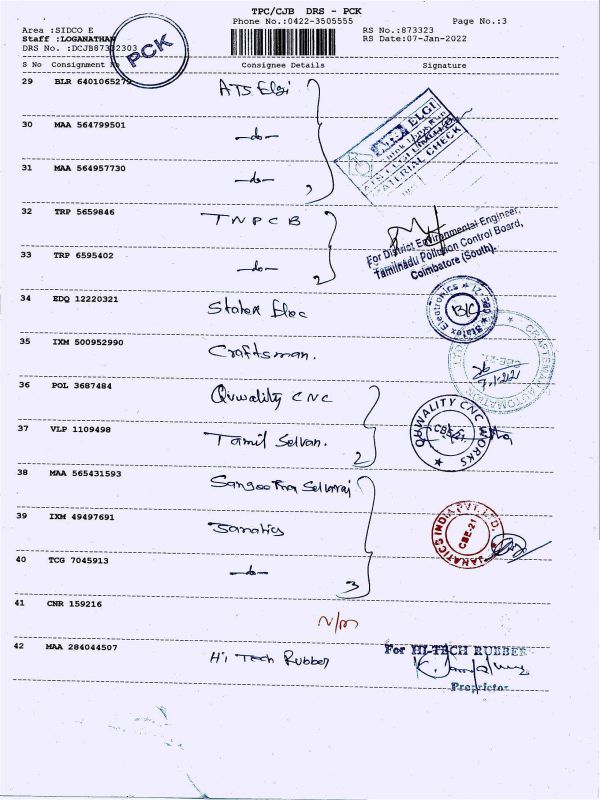 TPC/CJB DRS - PCK
Phone No.:0422-3505555 Page No.:3
Area :SIDCO E RS No.:873323
Staff :LOGANATHAN RS Date:07-Jan-2022
DRS No. :DCJB87332303
PCK
S No Consignment No Consignee Details Signature
29 BLR 6401065279 ATS Elgi
ELGI
MATERIAL CHECK
30 MAA 564799501 -do-
31 MAA 564957730 -do-
32 TRP 5659846 TNPCB
For District Environmental Engineer,
Tamilnadu Pollution Control Board,
Coimbatore (South).
33 TRP 6595402 -do- 2
34 EDQ 12220321 Statex Elec
Statex Electronics B/C CBE-21
35 IXM 500952990 Craftsman.
CRAFTSMAN AUTOMATION CBE-21.
36 POL 3687484 Quwality CNC
QUWALITY CNC WORKS CBE-21.
37 VLP 1109498 Tamil Selvan. 2
38 MAA 565431593 Sangeetha Selvaraj
39 IXM 49497691 Janatics
JANATICS INDIA PVT. LTD. CBE-21
40 TCG 7045913 -do- 3
41 CNR 159216 N/M
42 MAA 284044507 Hi Tech Rubber
For HI-TECH RUBBER
Proprietor